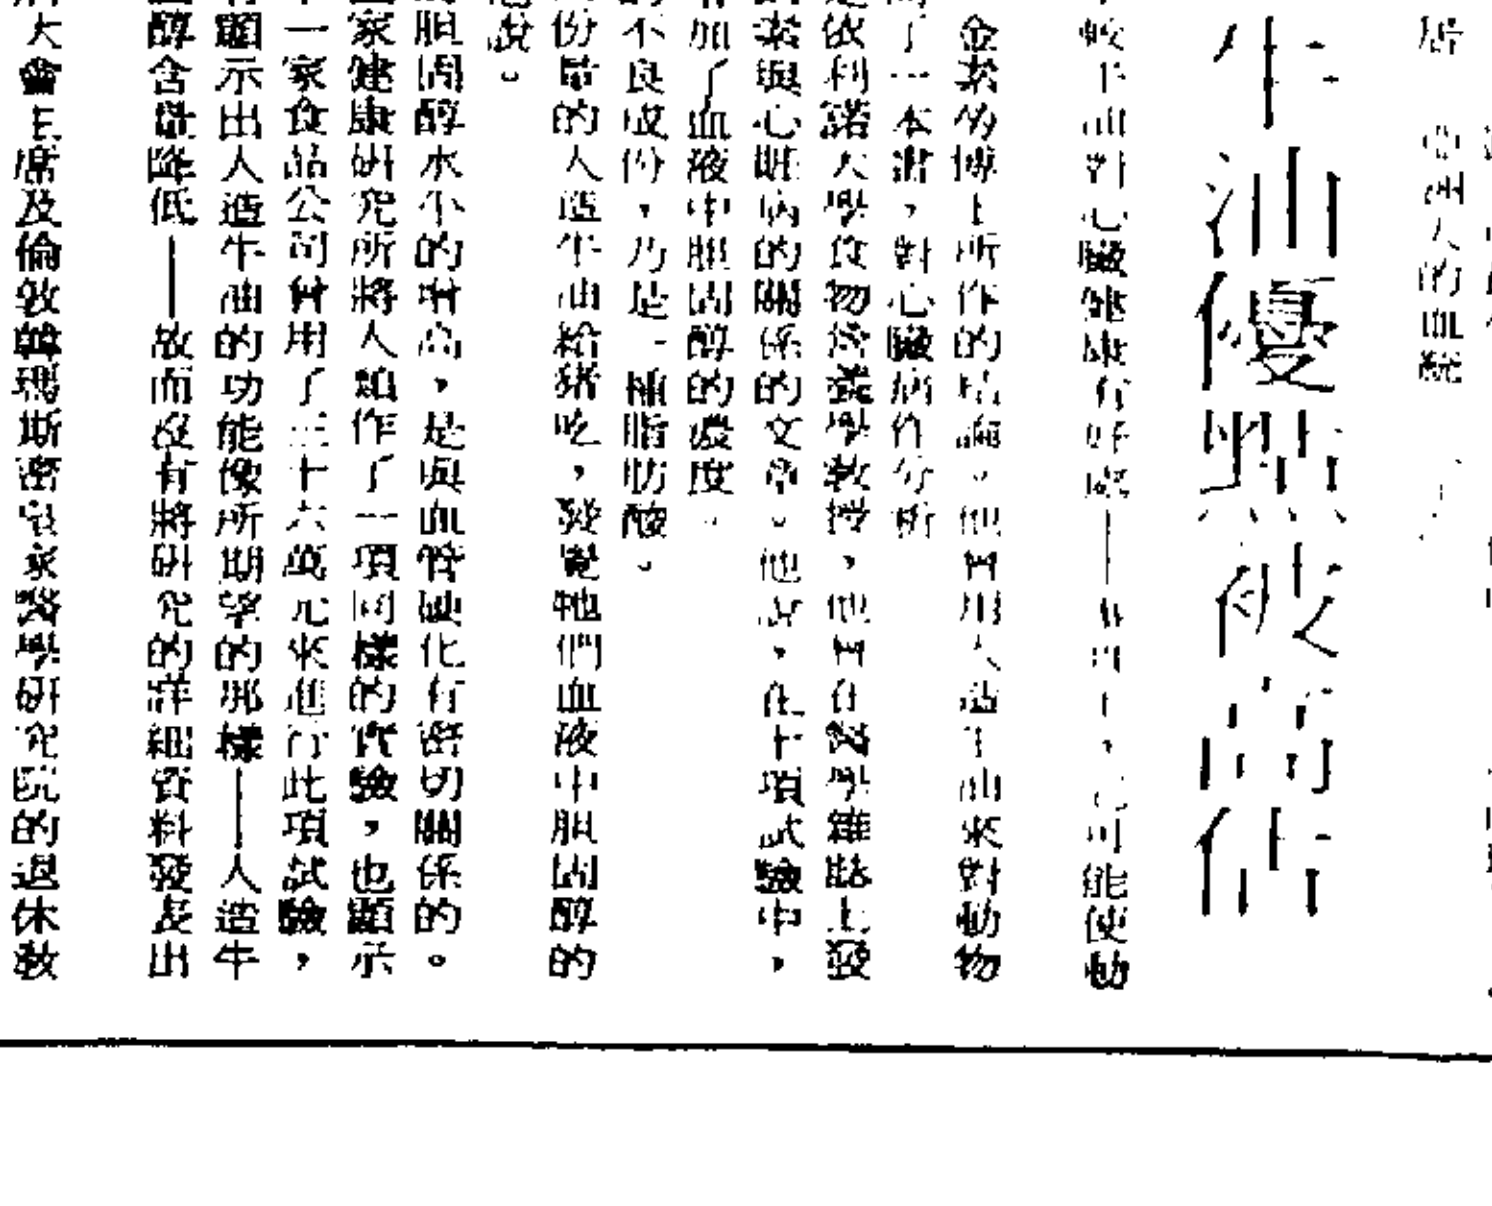 居
亞洲人的血統
牛油優點使高估
較牛油對心臟健康有好處——事實上，它可能使動
金素勞博士所作的結論。他曾用人造牛油來對動物
了一本書，對心臟病作分析
是依利諾大學食物營養學教授，他曾在醫學雜誌上發
素與心脏病的關係的文章。他說，在十項試驗中，
加了血液中胆固醇的濃度。
的不良成份，乃是一種脂肪酸。
份量的人造牛油給豬吃，發覺牠們血液中胆固醇的
他說。
胆固醇水平的增高，是與血管硬化有密切關係的。
家健康研究所將人類作了一項同樣的實驗，也顯示
一家食品公司曾用了三十六萬元來進行此項試驗，
顯示出人造牛油的功能像所期望的那樣——人造牛
醇含量降低——故而沒有將研究的詳細資料發表出
大會主席及倫敦韓瑪斯密皇家醫學研究院的退休教